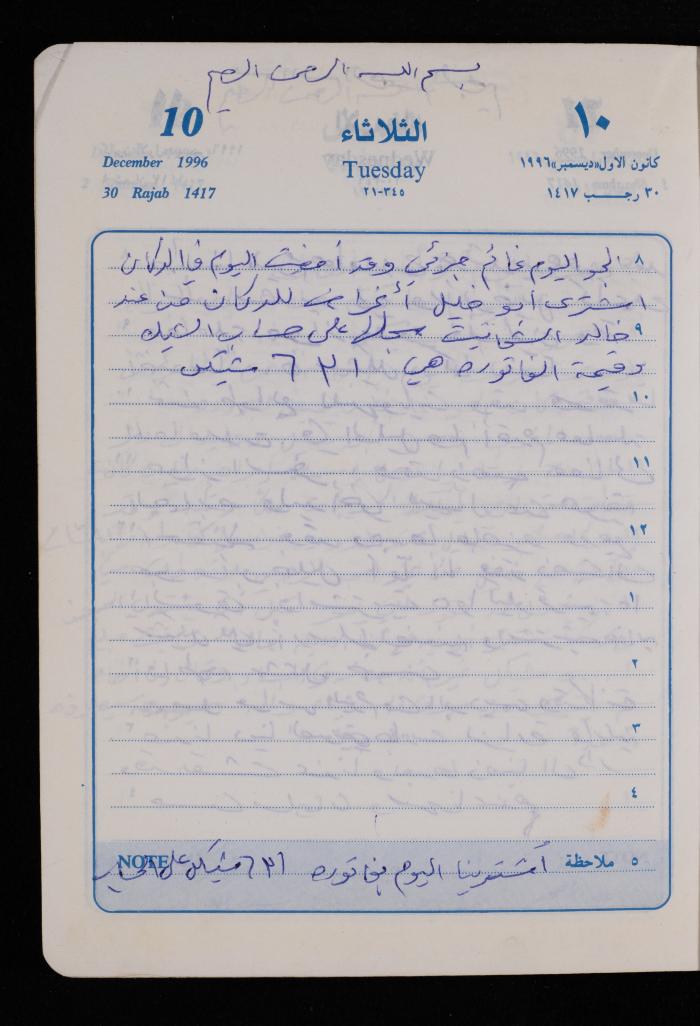 بسم الله الرحمن الرحيم
10 الثلاثاء ١٠
December 1996 Tuesday كانون الاول «ديسمبر» ١٩٩٦
30 Rajab 1417 ٣٤٥-٢١ ٣٠ رجب ١٤١٧
٨ الجو اليوم غائم جزئي وقد أمضيت اليوم في الدكان
اشترى ابو خليل أغراض للدكان من عند
٩ خالد سجلها على حساب الشيك
وقيمة الفاتورة هي ٦٣١ شيكل
١٠
١١
١٢
١
٢
٣
٤
٥ ملاحظة أشترينا اليوم بفاتوره ٦٣١ شيكل على NOTE